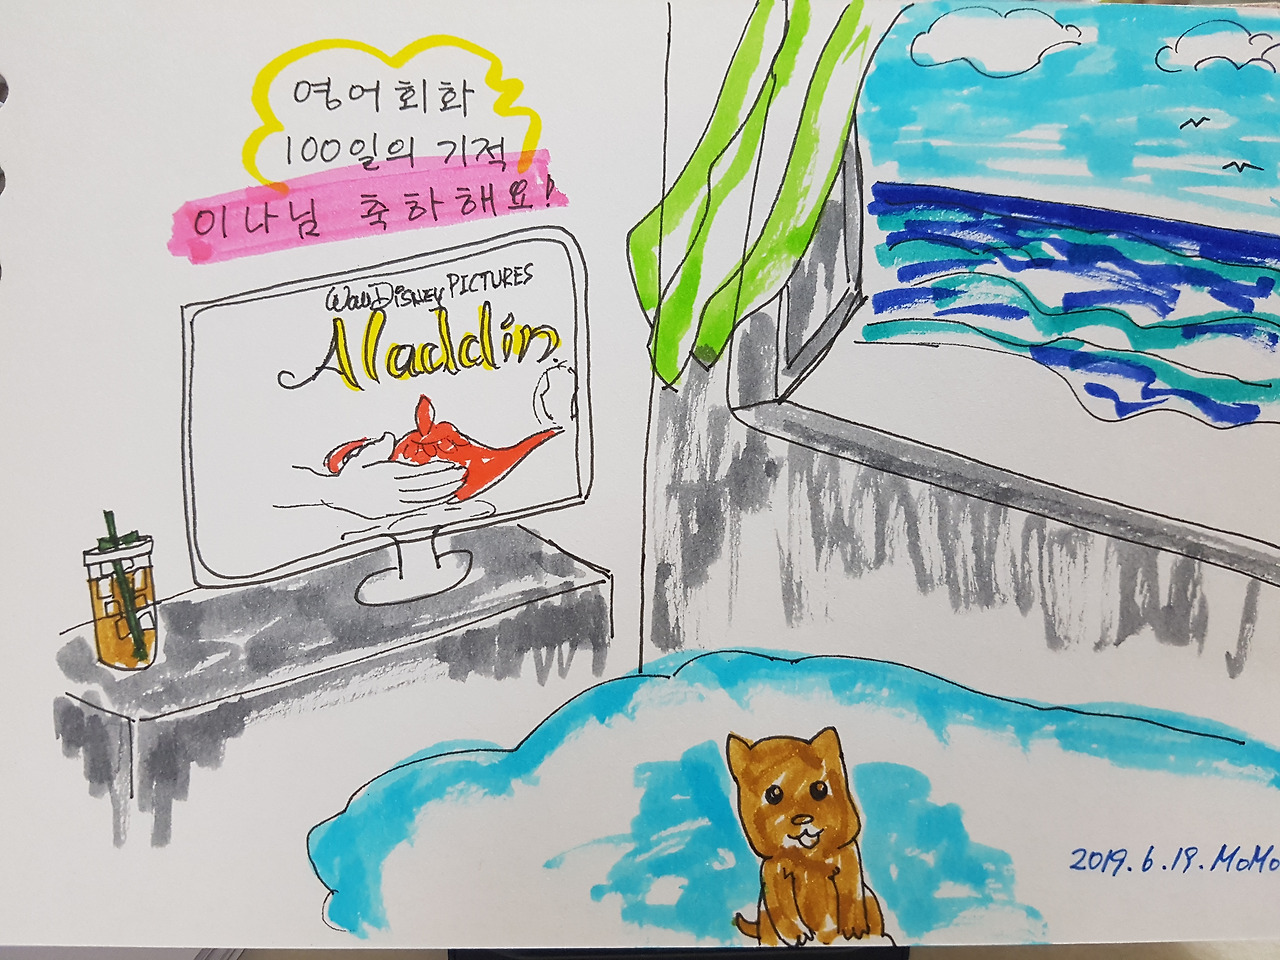 영어회화
100일의 기적
이나님 축하해요!
WALT DISNEY PICTURES
Aladdin
2019.6.19.MoMo